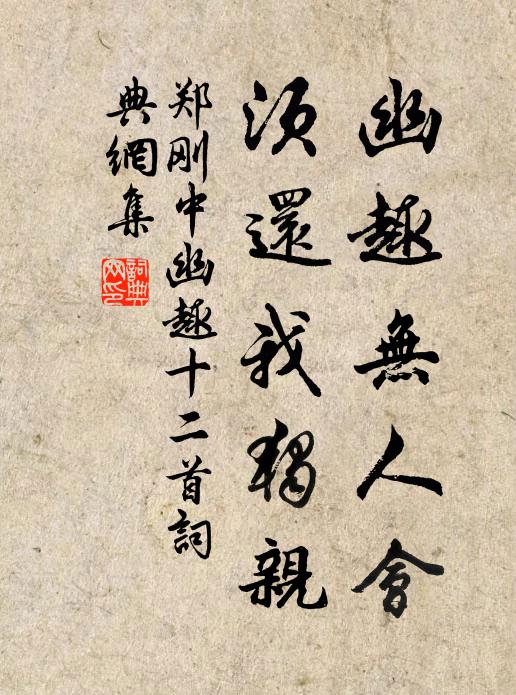 幽趣無人會
須還我獨親
郑刚中幽趣十二首詞
典網集
詞典网印